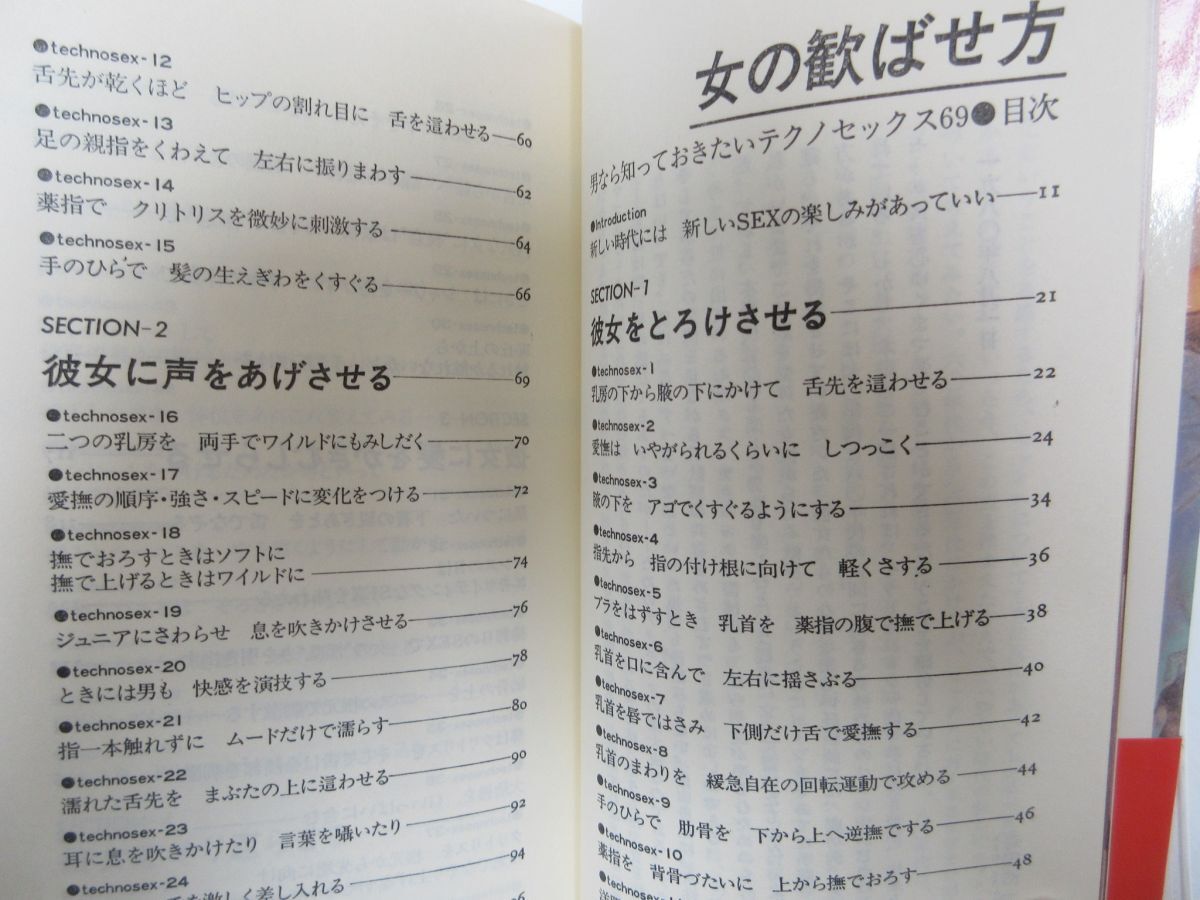 女の歓ばせ方
男なら知っておきたいテクノセックス69●目次
●Introduction
新しい時代には 新しいSEXの楽しみがあっていい——11
SECTION-1
彼女をとろけさせる——21
●technosex-1
乳房の下から腋の下にかけて 舌先を這わせる——22
●technosex-2
愛撫は いやがられるくらいに しつっこく——24
●technosex-3
腋の下を アゴでくすぐるようにする——34
●technosex-4
指先から 指の付け根に向けて 軽くさする——36
●technosex-5
ブラをはずすとき 乳首を 薬指の腹で撫で上げる——38
●technosex-6
乳首を口に含んで 左右に揺さぶる——40
●technosex-7
乳首を唇ではさみ 下側だけ舌で愛撫する——42
●technosex-8
乳首のまわりを 緩急自在の回転運動で攻める——44
●technosex-9
手のひらで 肋骨を 下から上へ逆撫でする——46
●technosex-10
薬指を 背骨づたいに 上から撫でおろす——48
●technosex-
●technosex-12
舌先が乾くほど ヒップの割れ目に 舌を這わせる——60
●technosex-13
足の親指をくわえて 左右に振りまわす——62
●technosex-14
薬指で クリトリスを微妙に刺激する——64
●technosex-15
手のひらで 髪の生えぎわをくすぐる——66
SECTION-2
彼女に声をあげさせる——69
●technosex-16
二つの乳房を 両手でワイルドにもみしだく——70
●technosex-17
愛撫の順序・強さ・スピードに変化をつける——72
●technosex-18
撫でおろすときはソフトに
撫で上げるときはワイルドに——74
●technosex-19
ジュニアにさわらせ 息を吹きかけさせる——76
●technosex-20
ときには男も 快感を演技する——78
●technosex-21
指一本触れずに ムードだけで濡らす——80
●technosex-22
濡れた舌先を まぶたの上に這わせる——90
●technosex-23
耳に息を吹きかけたり 言葉を囁いたり——92
●technosex-24
を激しく差し入れる——94